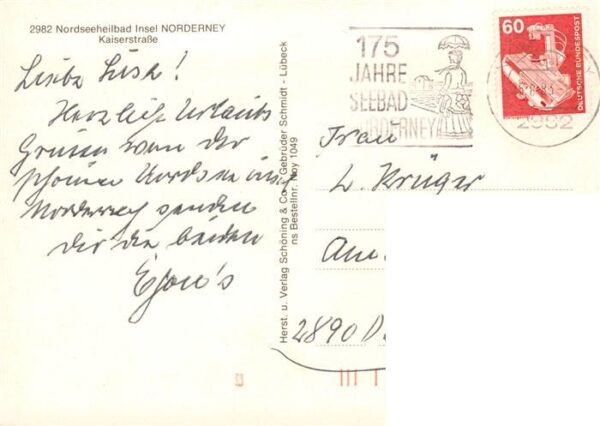 2982 Nordseeheilbad Insel NORDERNEY
Kaiserstraße
Liebe
Herzliche Urlaubs
Grüsse von der
schönen Nordsee
Norderney senden
Dir die beiden
Egon's
Herst. u. Verlag Schöning & Co + Gebrüder Schmidt - Lübeck
ns Bestellnr. Ney 1049
175
JAHRE
SEEBAD
NORDERNEY
60
DEUTSCHE BUNDESPOST
2982
Frau
L. Krüger
Am
2890